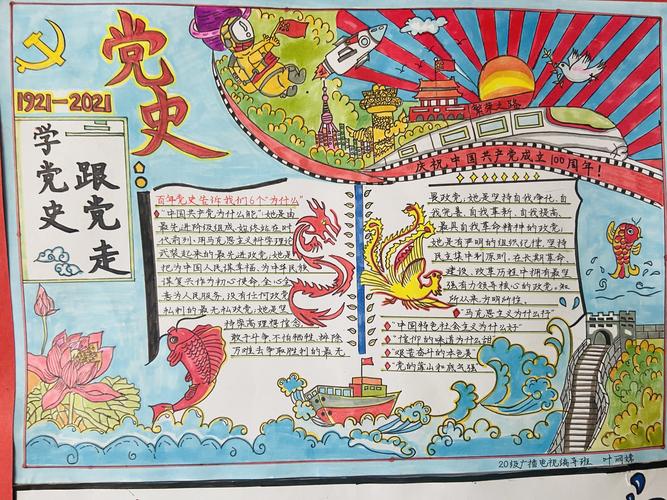 党史
1921-2021
学党史
跟党走
繁荣之路
庆祝中国共产党成立100周年！
百年党史告诉我们6个"为什么"
"中国共产党为什么能"她是由
最先进阶级组成、始终站在时
代前列、用马克思主义科学理论
武装起来的最先进政党，她是
把为中国人民谋幸福、为中华民族
谋复兴作为初心使命、全心全
意为人民服务、没有任何政党
私利的最无私政党，她是坚
持崇高理想信念、
敢于斗争、不怕牺牲、排除
万难去争取胜利的最先
最政党，她是坚持自我净化、自
我完善、自我革新、自我提高、
最具自我革命精神的政党，
她是有严明的组织纪律、坚持
民主集中制原则、在长期革命
建设、改革历程中拥有最坚
强有力领导核心的政党。知
所从来，方明所往。
"马克思主义为什么行"
"中国特色社会主义为什么好"
"信仰的味道为什么甜
"艰苦奋斗的本色美"
"党的
20级广播电视编导班